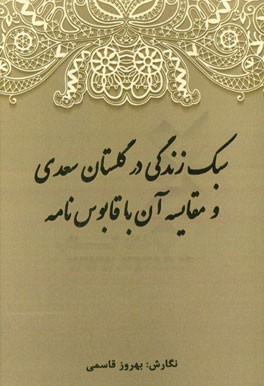 سبک زندگی در گلستان سعدی
و مقایسه آن با قابوس نامه
نگارش: بهروز قاسمی